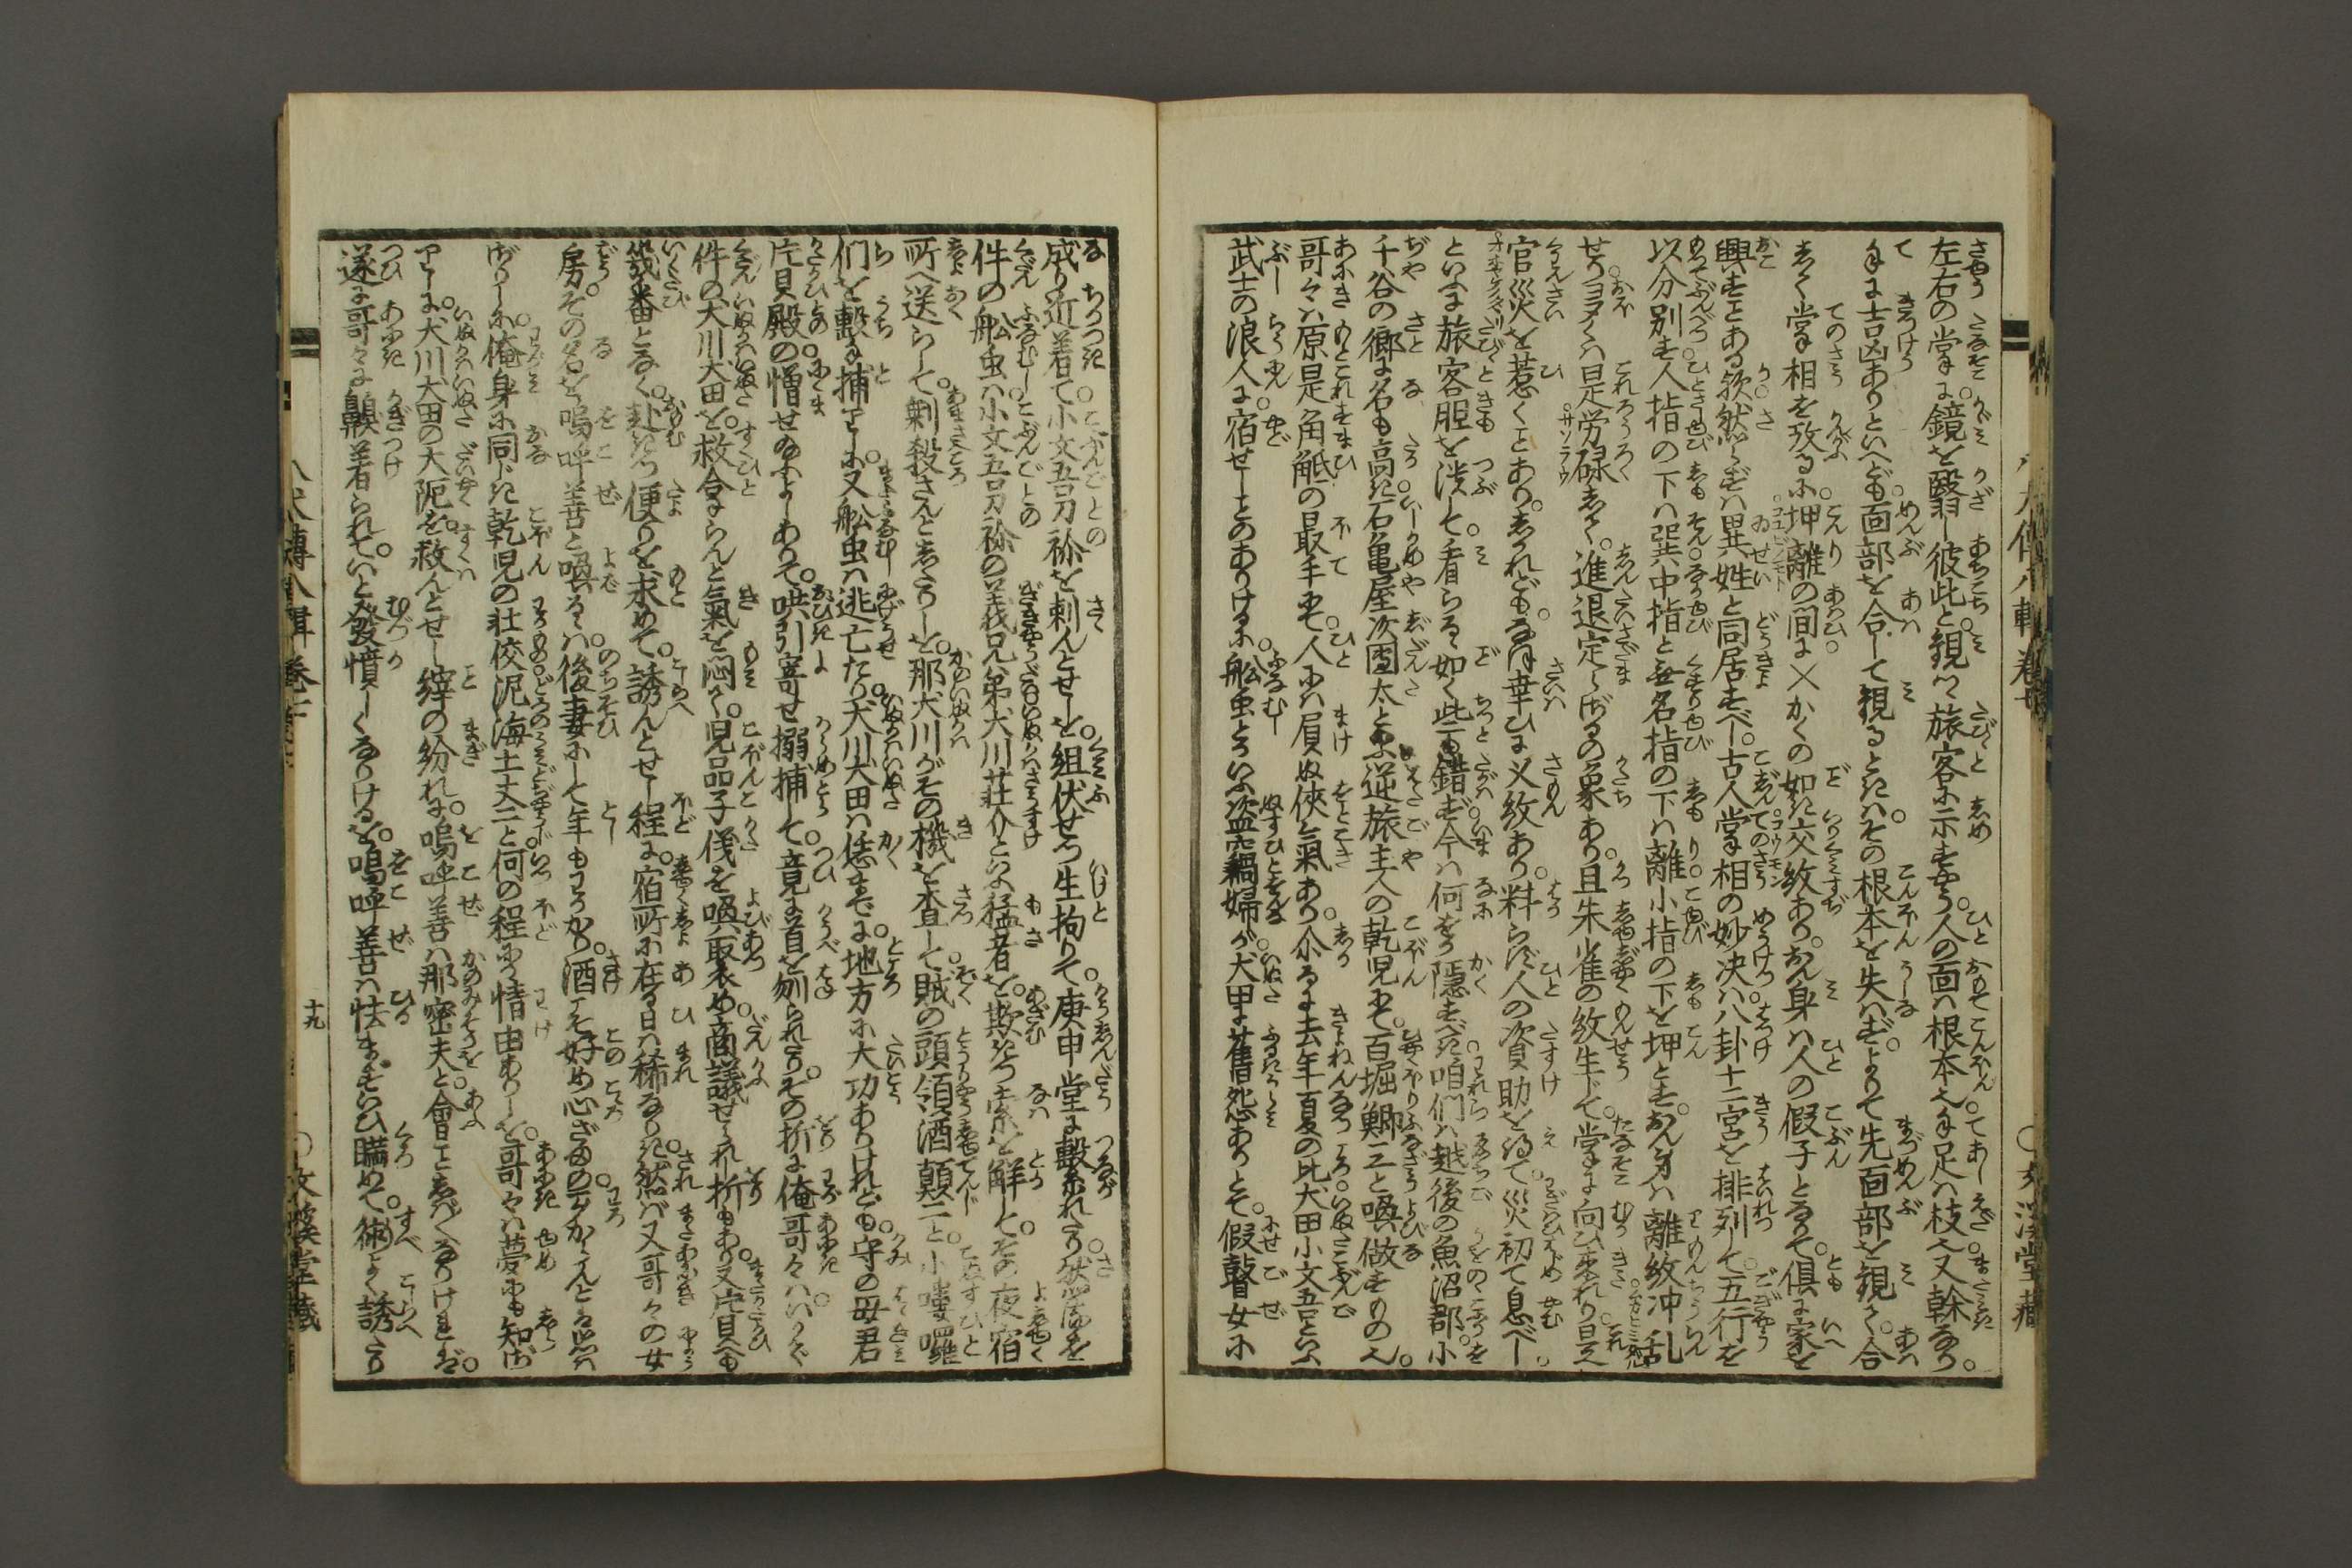 左右の掌に。鏡を翳し彼此と。親つゝ旅客に示すやう。人の面は根本へ手足は枝へ又幹なり。
手に吉凶ありといへども。面部を合して親るときは。その根本を失はず。よりて先面部を親て。合
しく掌相を攷るに。坤離の間に×かくの如き交紋あり。おん身は人の假子となりて。倶に家を
興すことある歟。然らずは異姓と同居すべし。古人掌相の妙決は。八卦十二宮を排列して。五行を
以分別す。人指の下は巽。中指と無名指の下は離。小指の下を坤とす。おん身は離紋冲乱
せり。ヨヲくは是労碌しく。進退定らざるの象あり。且朱雀の紋生じて。掌に向ひ来れり。是
官災を惹くことあり。しかれども。なほ幸ひに义紋あり。料らず人の資助を得て。災初て息べし。
といふに旅客胆を潰して。看らるゝ如く些も錯ず。今は何をか隠すべき。咱們は越後の魚沼郡。小
千谷の郷に名も高き。石亀屋次團太といふ逆旅主人の乾児にて。百堀鮒三と喚做すもの也。
哥々は原是角觝の最手にて。人には屓ぬ侠気あり。尒るに去年夏の比。犬田小文吾といふ
武士の浪人に。宿せしことのありけるに。舩虫といふ盗賊婦が。犬田に舊怨ありとて。假瞽女に
成り近著て。小文吾刀祢を刺んとせしを。組伏せつ生拘りて。庚申堂に繋れたり。然るを
件の舩虫は。小文吾刀祢の義兄弟。犬川荘介といふ猛者を。欺きつ索を解して。その夜宿
所へ送らして。剩殺さんとしたりしを。那犬川がその機を査して。賊の頭領酒顛二と。小嘍囉
们を轂に捕りしに。又舩虫は逃亡たり。犬川犬田は恁までに。地方に大功ありけれども。守の母君
片貝殿の。憎せ給ふよしありて。哄引寄せ搦捕て。竟に首を刎られたり。その折に俺哥々は。いかで
件の犬川犬田を。救合らんと氣を悶く。児品子俵を喚聚め。商議せられし折もあり。又片貝へも
幾番となく。赴きつ便りを求めて。誘んとせし程に。宿所に在る日は稀なりき。然ば又哥々の女
房。その名を嗚呼善と喚るゝは。後妻にして年もわかかり。酒をぞ好め心ざまの。わろかんとは思は
ざりしに。俺身に同じき乾児の。荘佼泥海土丈二と。何の程にか情由ありしを。哥々は夢にも知ざ
りしに。犬川犬田の大阨を。救んとせし縡の紛れに。嗚呼善は那密夫と。會ことしばくなりければ。
遂に哥々に顕著られて。いと發憤しくなりけるを。嗚呼善は怯まずいひ瞞めて。術よく誘たり
十九